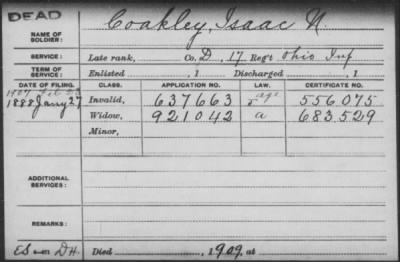 DEAD
NAME OF SOLDIER: Coakley, Isaac N.
SERVICE: Late rank, Co. D, 17 Reg't Ohio Inf
TERM OF SERVICE: Enlisted , 1 Discharged , 1
DATE OF FILING. CLASS. APPLICATION NO. LAW. CERTIFICATE NO.
1907
1888 Jany 27 Invalid, 637663 age 556075
Widow, 921042 a 683529
Minor,
ADDITIONAL SERVICES:
REMARKS:
ES Died , 1909, at